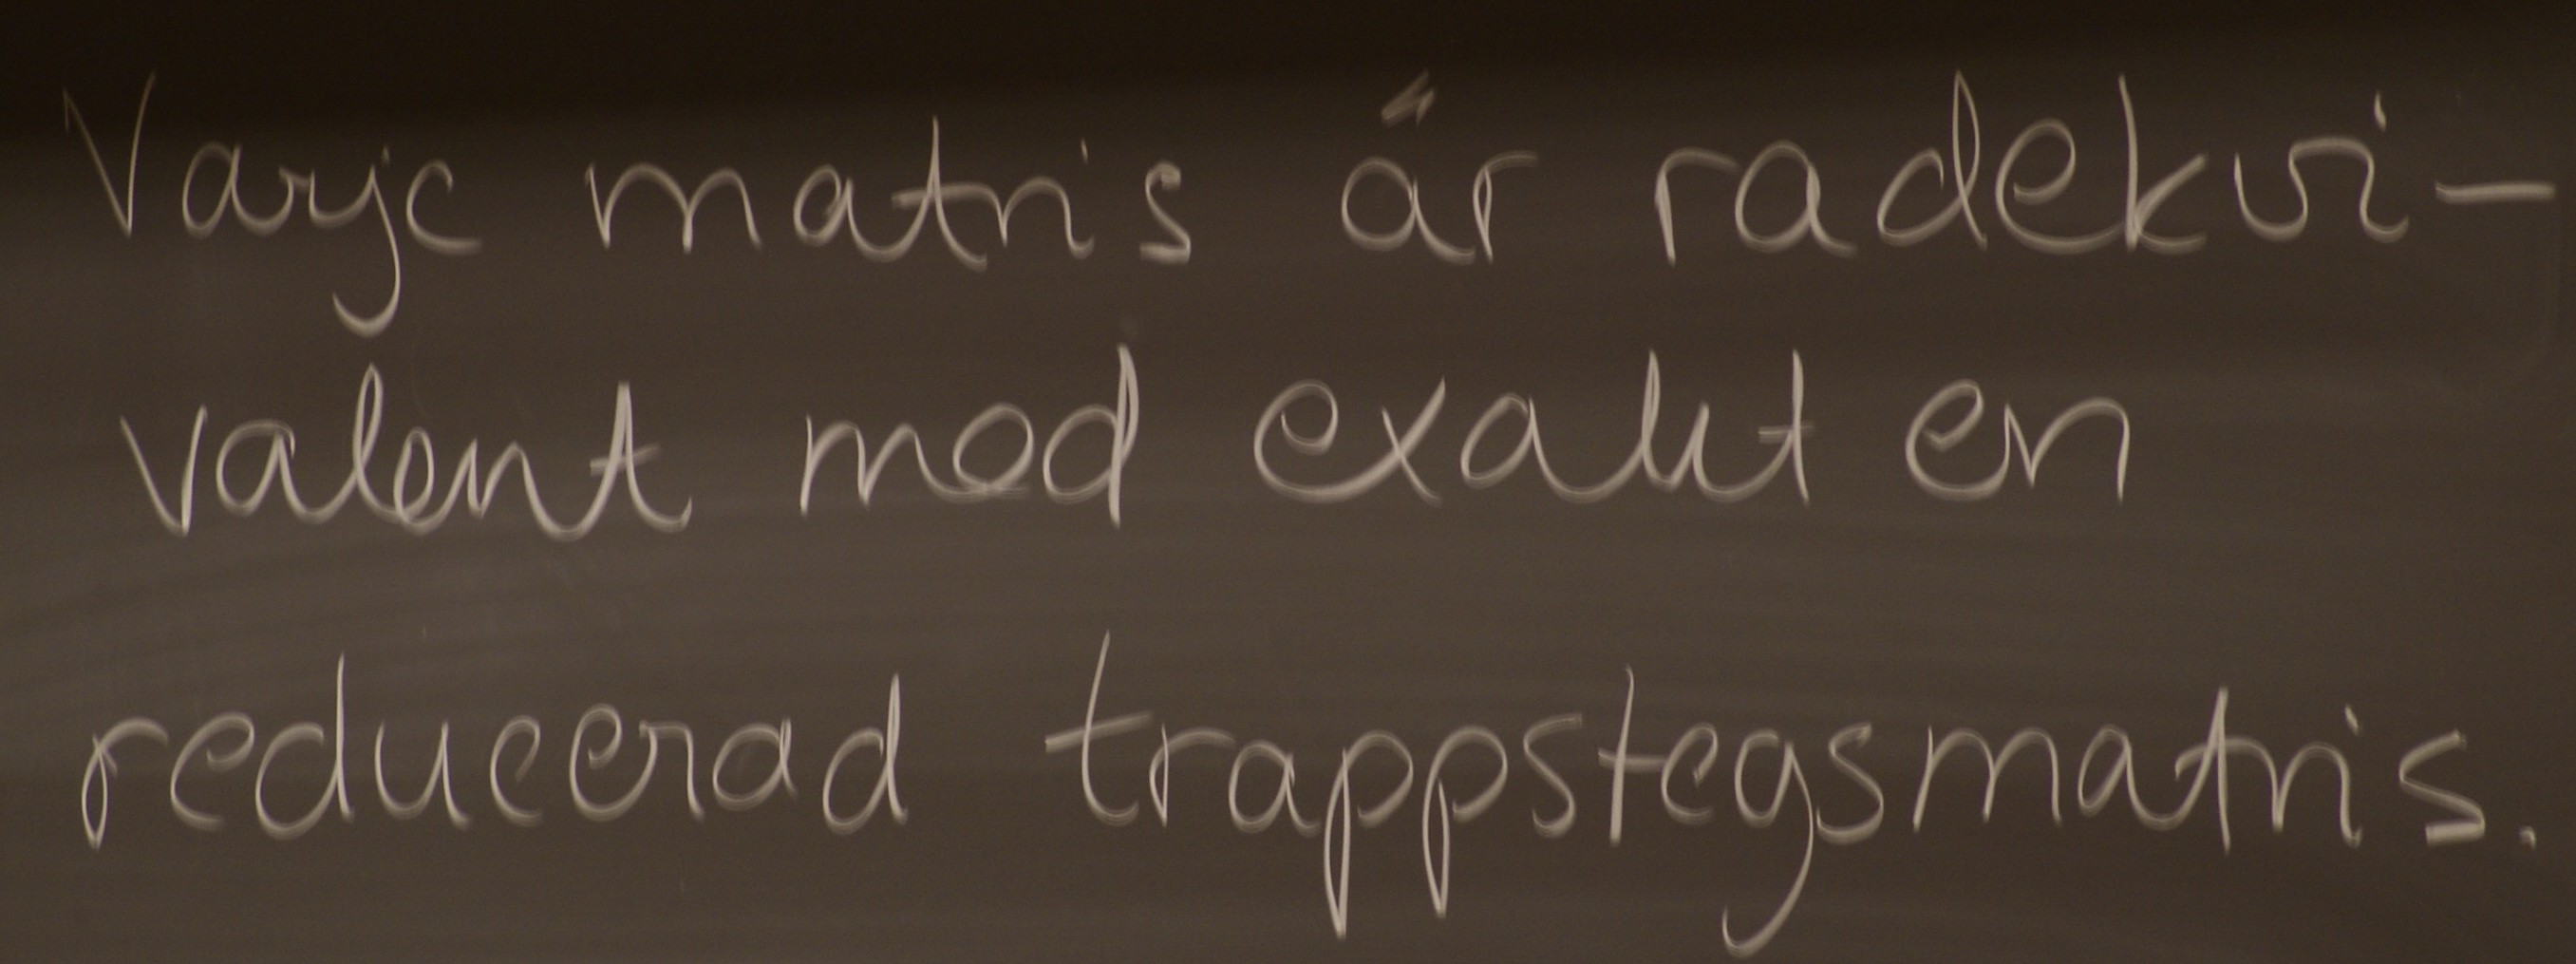 Varje matris är radekvi-
valent med exakt en
reducerad trappstegsmatris.